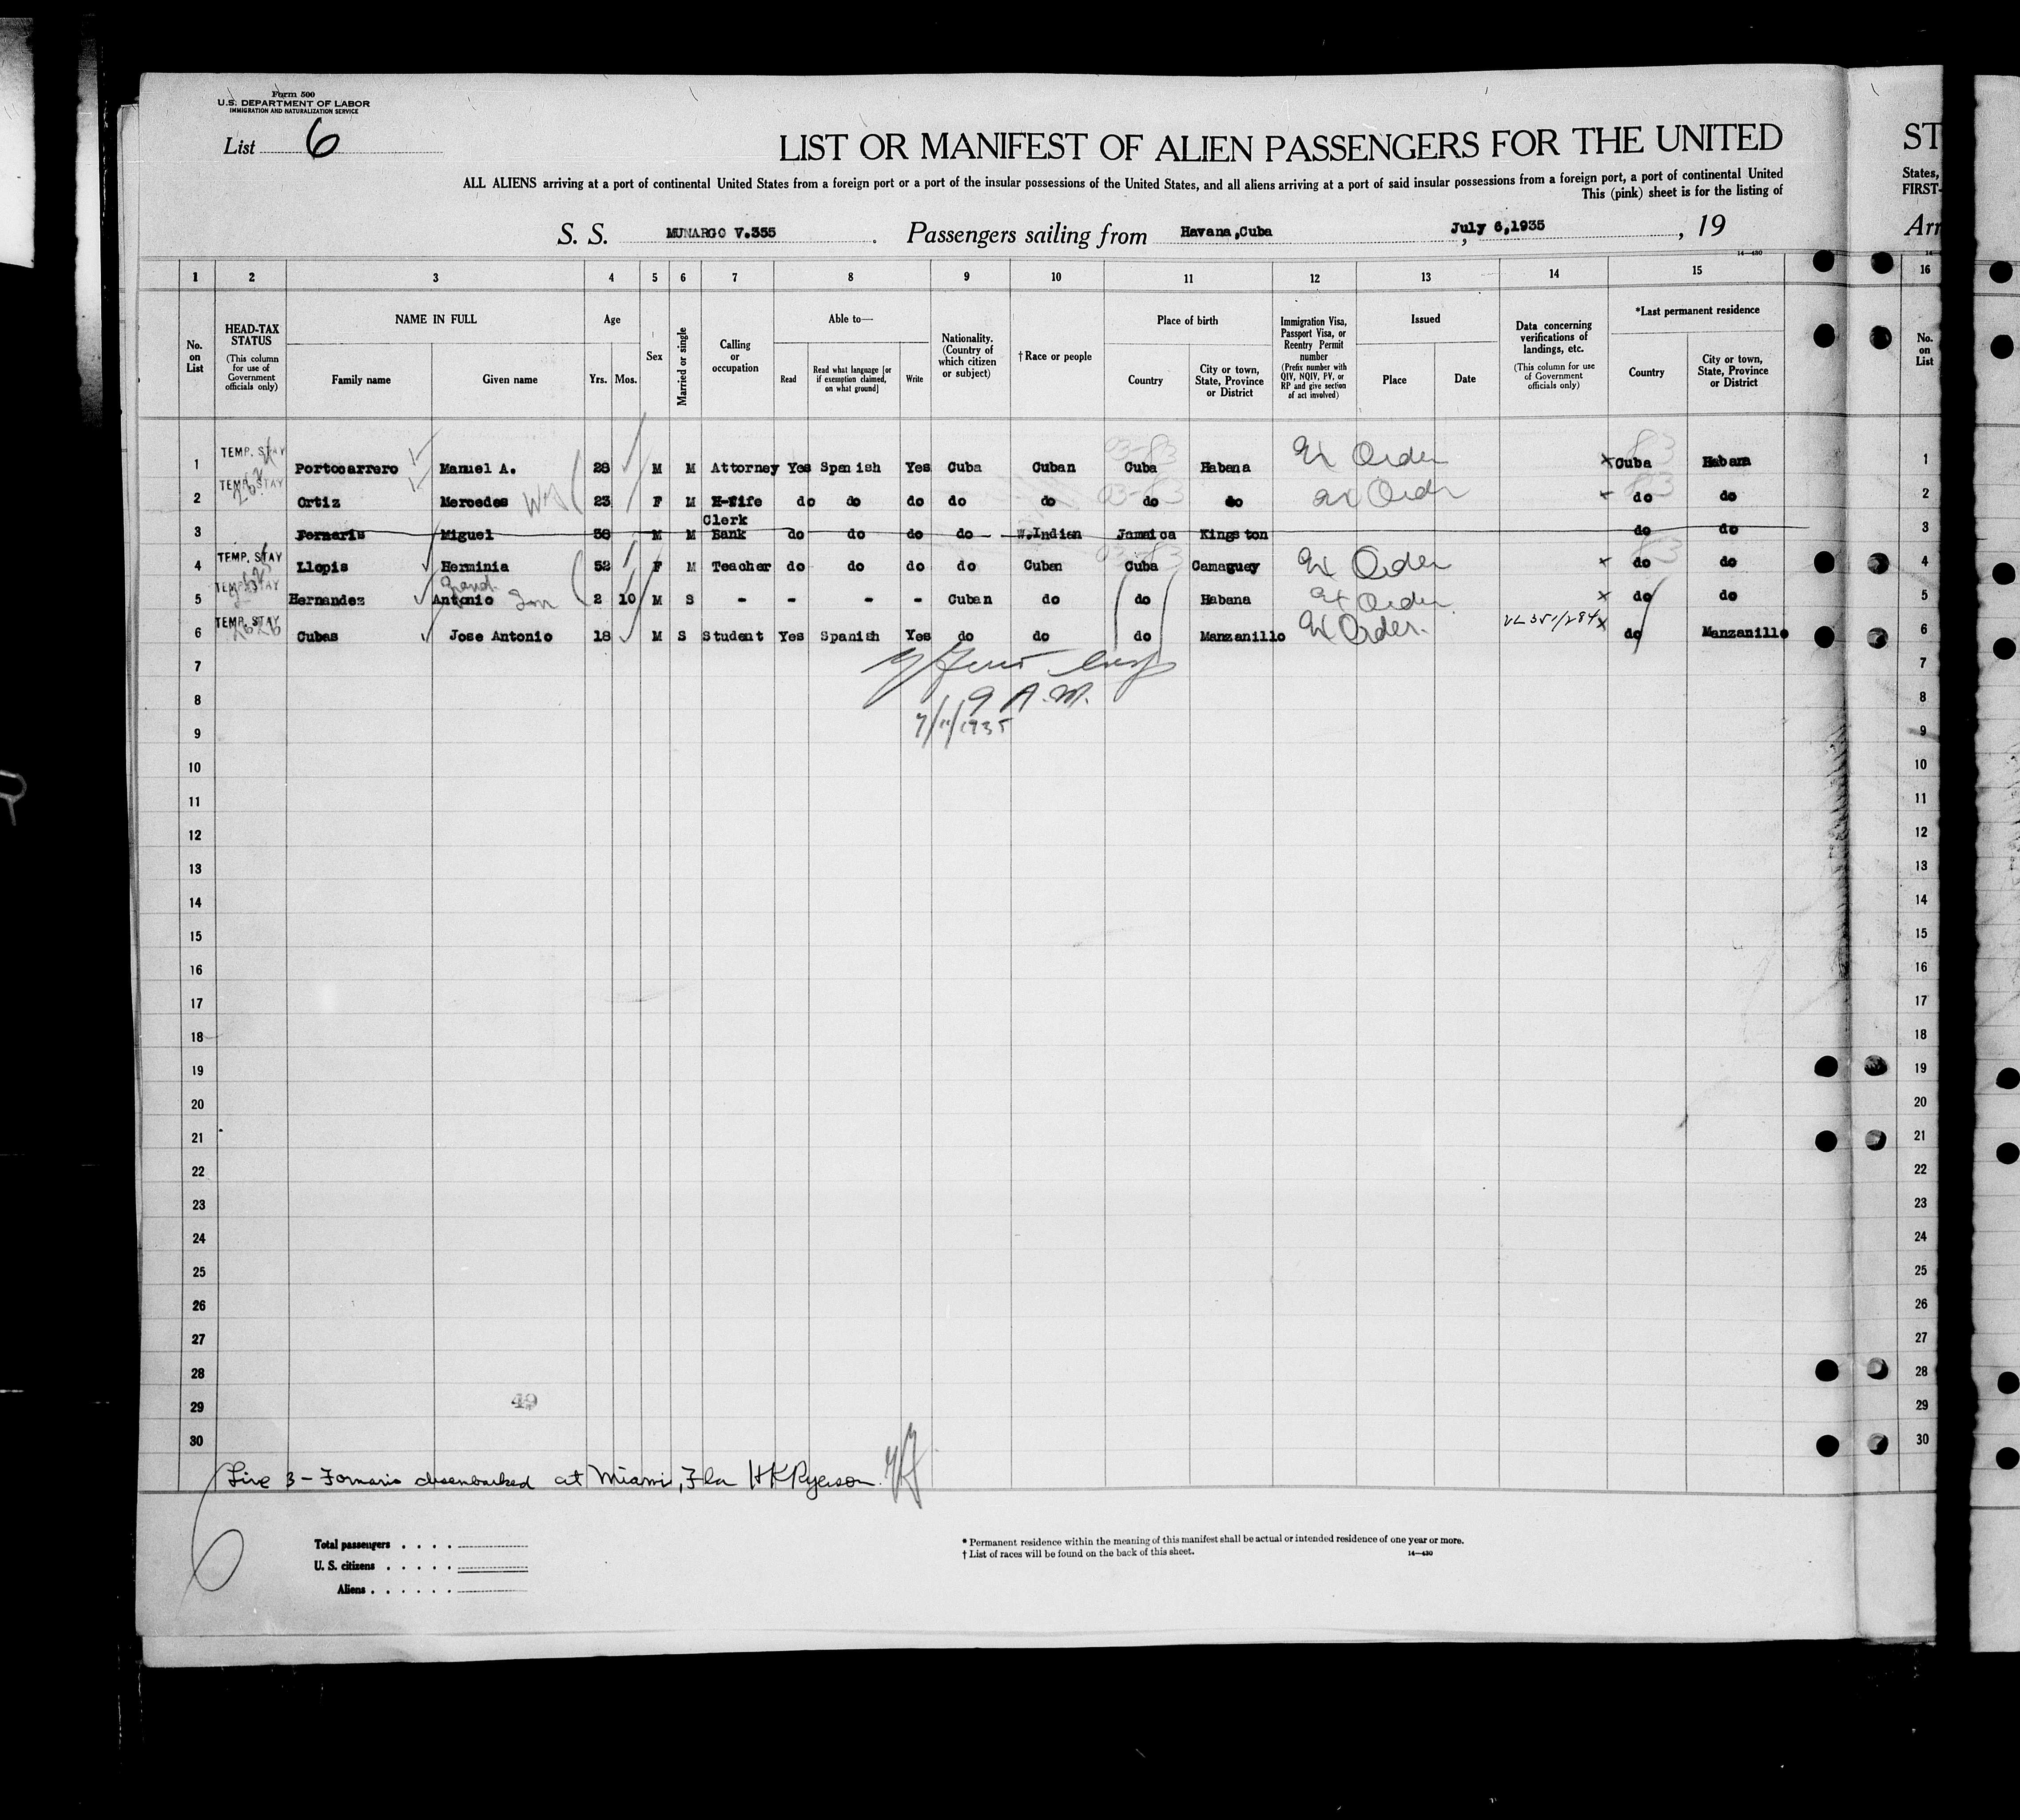 Form 500
U.S. DEPARTMENT OF LABOR
IMMIGRATION AND NATURALIZATION SERVICE
List 6
LIST OR MANIFEST OF ALIEN PASSENGERS FOR THE UNITED ST
ALL ALIENS arriving at a port of continental United States from a foreign port or a port of the insular possessions of the United States, and all aliens arriving at a port of said insular possessions from a foreign port, a port of continental United States,
This (pink) sheet is for the listing of FIRST-
S. S. MUNARGO V.355 . Passengers sailing from Havana,Cuba , July 6,1935 , 19 Arr
14—430
1 2 3 4 5 6 7 8 9 10 11 12 13 14 15 16
No. on List
HEAD-TAX STATUS (This column for use of Government officials only)
NAME IN FULL
Family name Given name
Age
Yrs. Mos.
Sex
Married or single
Calling or occupation
Able to—
Read Read what language [or if exemption claimed, on what ground] Write
Nationality. (Country of which citizen or subject)
† Race or people
Place of birth
Country City or town, State, Province or District
Immigration Visa, Passport Visa, or Reentry Permit number (Prefix number with QIV, NQIV, PV, or RP and give section of act involved)
Issued
Place Date
Data concerning verifications of landings, etc. (This column for use of Government officials only)
*Last permanent residence
Country City or town, State, Province or District
No. on List
1 TEMP. STAY Portocarrero Manuel A. 28 M M Attorney Yes Spanish Yes Cuba Cuban 03-83 Cuba Habana Ex Order x Cuba Habana 1
2 TEMP. STAY Ortiz Mercedes 23 F M H-Wife do do do do do 03-83 do do Ex Order x do do 2
3 Fornaris Miguel 38 M M Clerk Bank do do do do W.Indian Jamaica Kingston do do 3
4 TEMP. STAY Llopis Herminia 52 F M Teacher do do do do Cuban 03-83 Cuba Camaguey Ex Order x do do 4
5 TEMP. STAY Hernandez Antonio Grand Son 2 10 M S - - - - Cuban do do Habana Ex Order x do do 5
6 TEMP. STAY Cubas Jose Antonio 18 M S Student Yes Spanish Yes do do do Manzanillo Ex Order. x do Manzanillo 6
7 7
8 9 A.M. 8
9 7/11/1935 9
10 10
11 11
12 12
13 13
14 14
15 15
16 16
17 17
18 18
19 19
20 20
21 21
22 22
23 23
24 24
25 25
26 26
27 27
28 28
29 49 29
30 30
Line 3 - Fornaris disembarked at Miami, Fla HKRyerson
6
Total passengers . . . .
U. S. citizens . . . . .
Aliens . . . . . .
* Permanent residence within the meaning of this manifest shall be actual or intended residence of one year or more.
† List of races will be found on the back of this sheet.
14—430